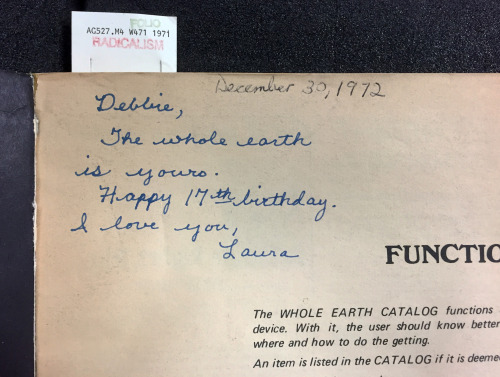 FOLIO
AG527.M4 W471 1971
RADICALISM
December 30, 1972
Debbie,
The whole earth
is yours.
Happy 17th birthday.
I love you,
Laura
FUNCTIO
The WHOLE EARTH CATALOG functions
device. With it, the user should know better
where and how to do the getting.
An item is listed in the CATALOG if it is deeme